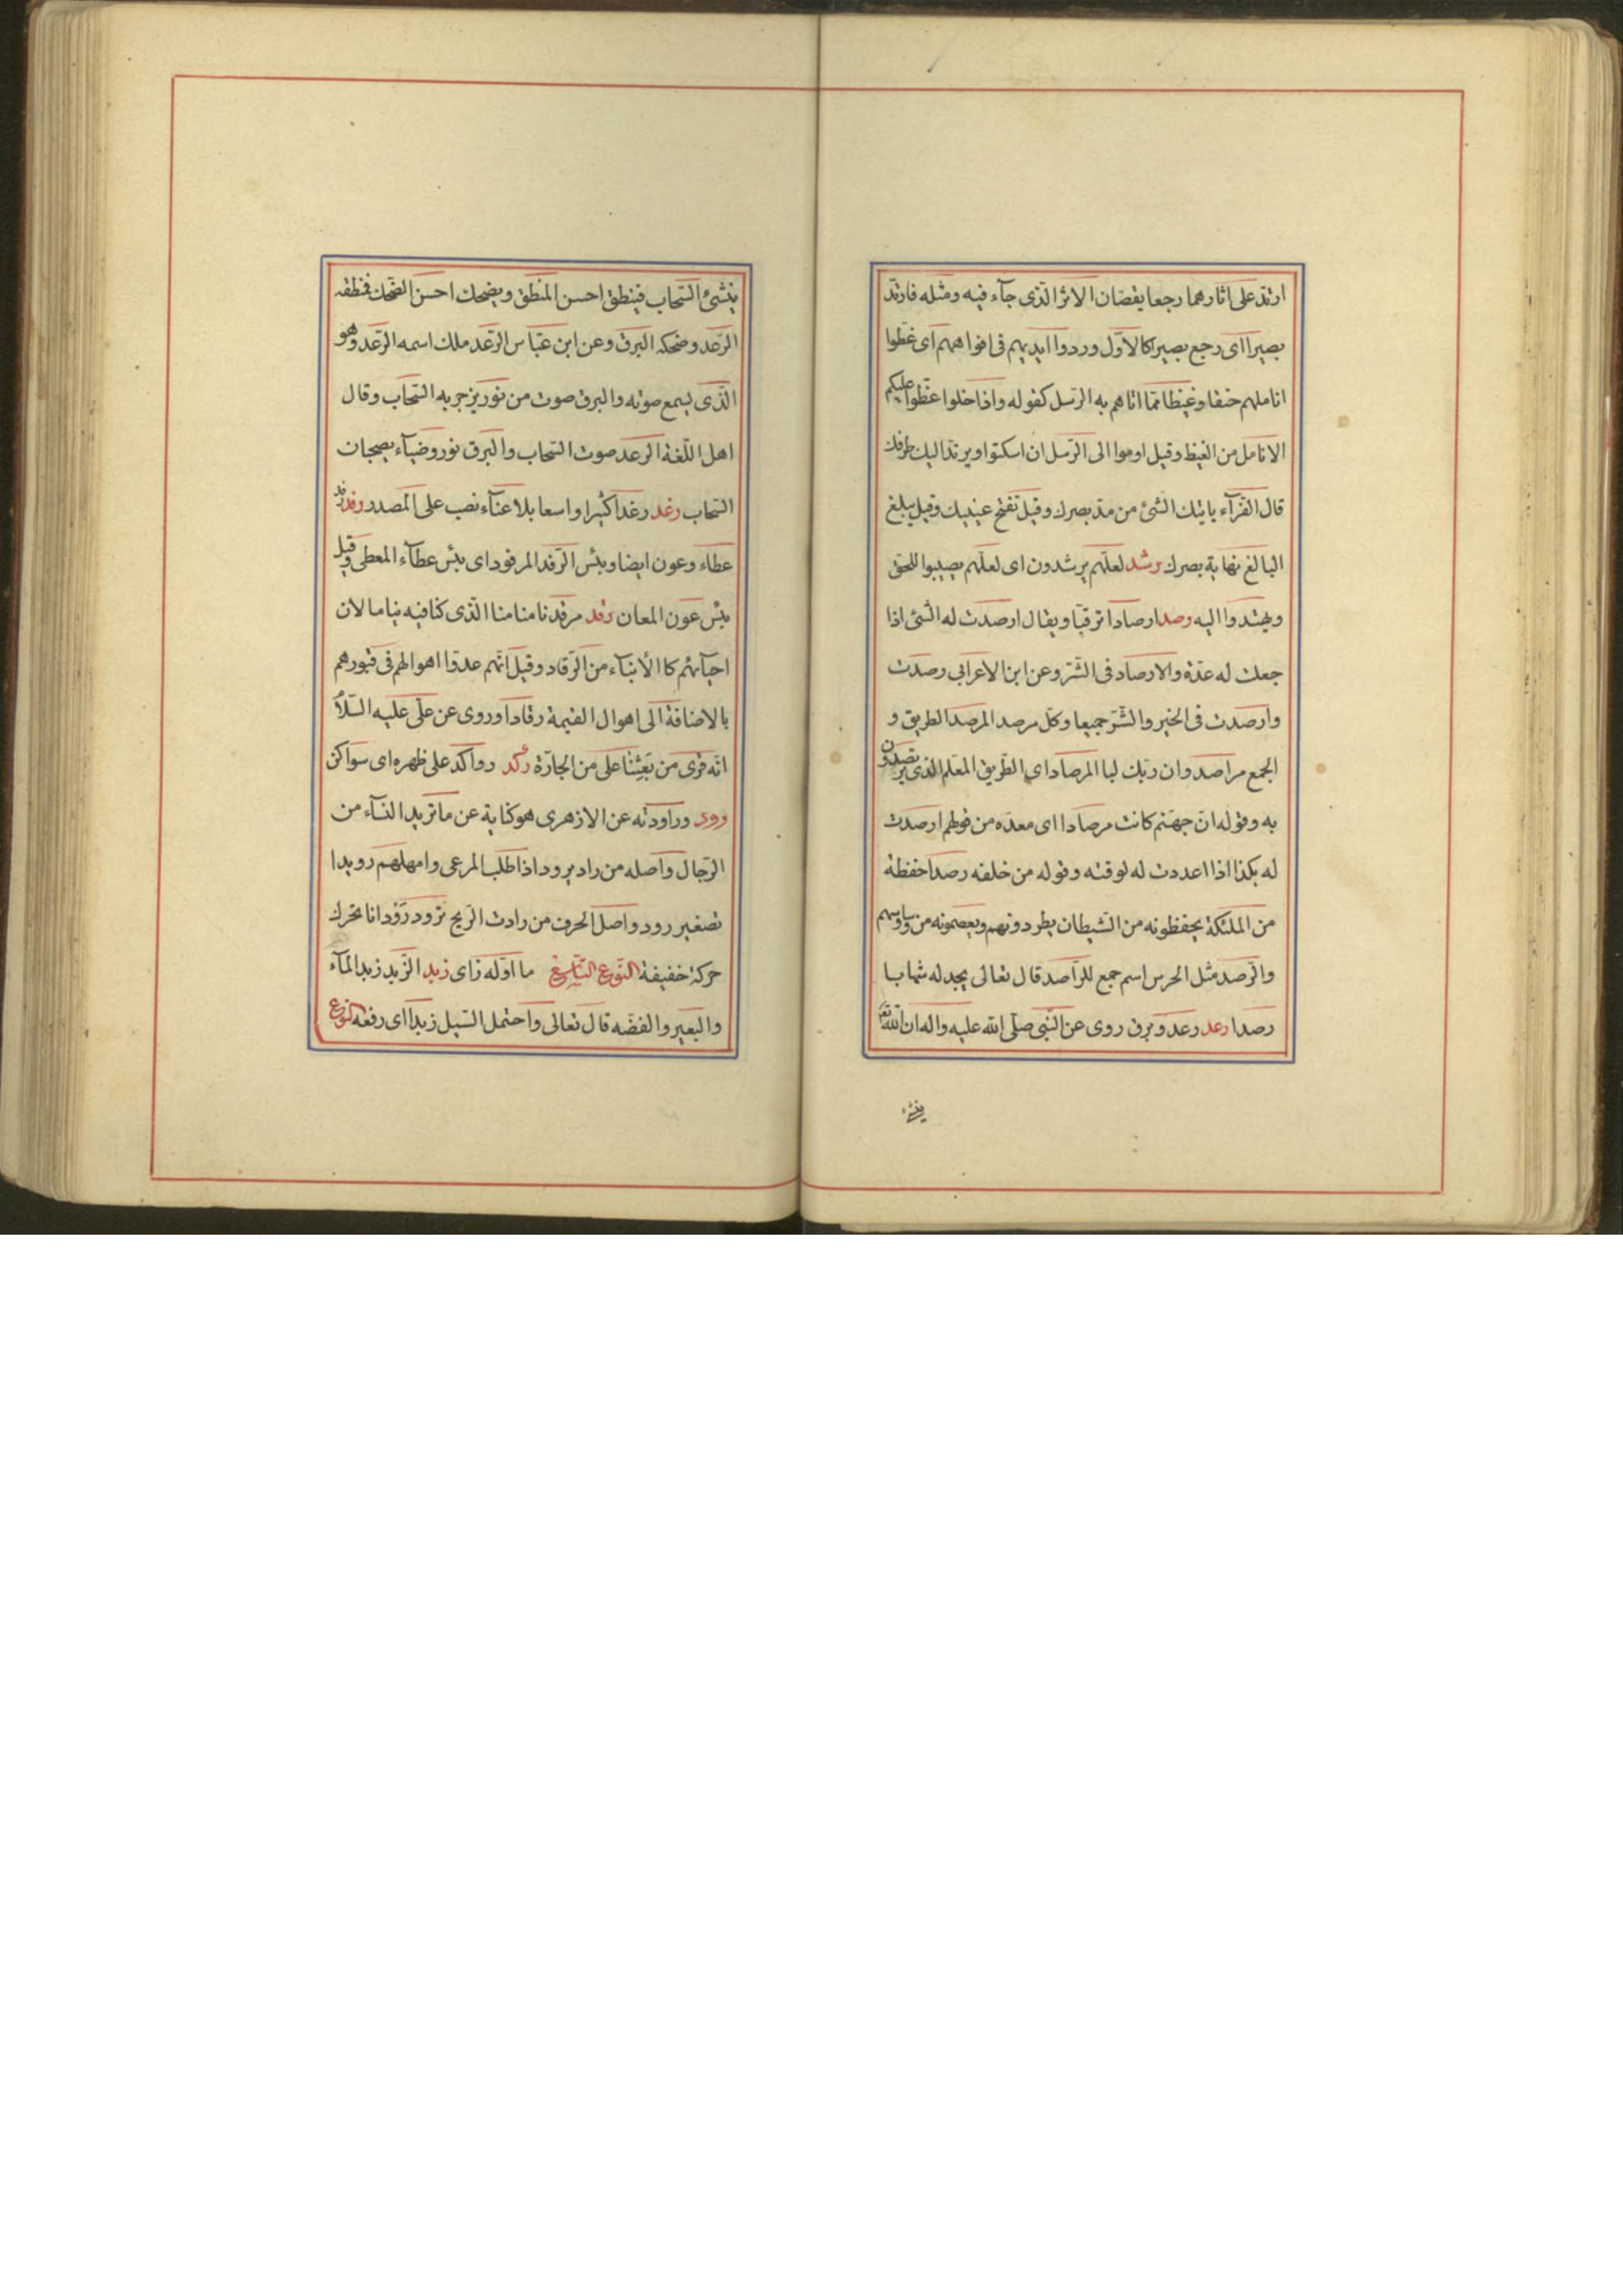 ارتد على اثارهما رجعا يقصان الاثر الذى جآء فيه ومثله فارتد
بصيرا اى رجع بصيرا كالاول وردوا ايديهم فى افواههم اى عضوا
اناملهم حنقا وغيظا مما اتاهم به الرسل كقوله واذا خلوا عضوا عليكم
الانامل من الغيظ وقيل اوموا الى الرسل ان اسكتوا ويرتد اليك طرفك
قال الفرآء ياتيك الشئ من مد بصرك وقيل تفتح عينيك وقيل يبلغ
البالغ نهاية بصرك رشد لعلهم يرشدون اى لعلهم يصيبوا للحق
ويهتدوا اليه رصد ارصادا ترقبا ويقال ارصدت له الشئ اذا
جعلت له عدة والارصاد فى الشر وعن ابن الاعرابي رصدت
وارصدت فى الخير والشر جميعا وكل مرصد المرصد الطريق و
الجمع مراصد وان ربك لبا المرصاد اى الطريق المعلم الذى يرتصدون
به وقوله ان جهنم كانت مرصادا اى معده من قولهم ارصدت
له بكذا اذا اعددت له لوقته وقوله من خلفه رصدا حفظة
من الملئكة يحفظونه من الشيطان يطردونهم ويعصمونه من وساوسهم
والرصد مثل الحرس اسم جمع للراصد قال تعالى يجد له شهابا
رصدا رعد رعد وبرق روى عن النبى صلى الله عليه واله ان الله تعالى
ينشئ
ينشئ السحاب فينطق احسن المنطق ويضحك احسن الضحك فنطقه
الرعد وضحكه البرق وعن ابن عباس الرعد ملك اسمه الرعد وهو
الذى يسمع صوته والبرق صوت من نور يزجر به السحاب وقال
اهل اللغة الرعد صوت السحاب والبرق نور وضيآء يصحبان
السحاب رغد رغدا كثيرا واسعا بلا عنآء نصب على المصدر رفد رفد
عطاء وعون ايضا وبئس الرفد المرفود اى بئس عطآء المعطى وقيل
بئس عون المعان رقد مرقدنا منامنا الذى كنا فيه نياما لان
احيآئهم كا الأنبآء من الرقاد وقيل انهم عدوا اهوالهم فى قبورهم
بالاضافة الى اهوال القيمة رقادا وروى عن على عليه السلم
انه قرى من بعثنا على من الجارة ركد رواكد على ظهره اى سواكن
رود وراودته عن الازهرى هو كناية عن ما تريد النسآء من
الرجال واصله من راد يرود اذا طلب المرعى وامهلهم رويدا
تصغير رود واصل الحرف من رادت الريح ترود رودانا تحرك
حركة خفيفة النوع التاسع ما اوله زاى زبد الزبد زبد المآء
والبعير والفضه قال تعالى واحتمل السيل زبدا اى رفعه النوع